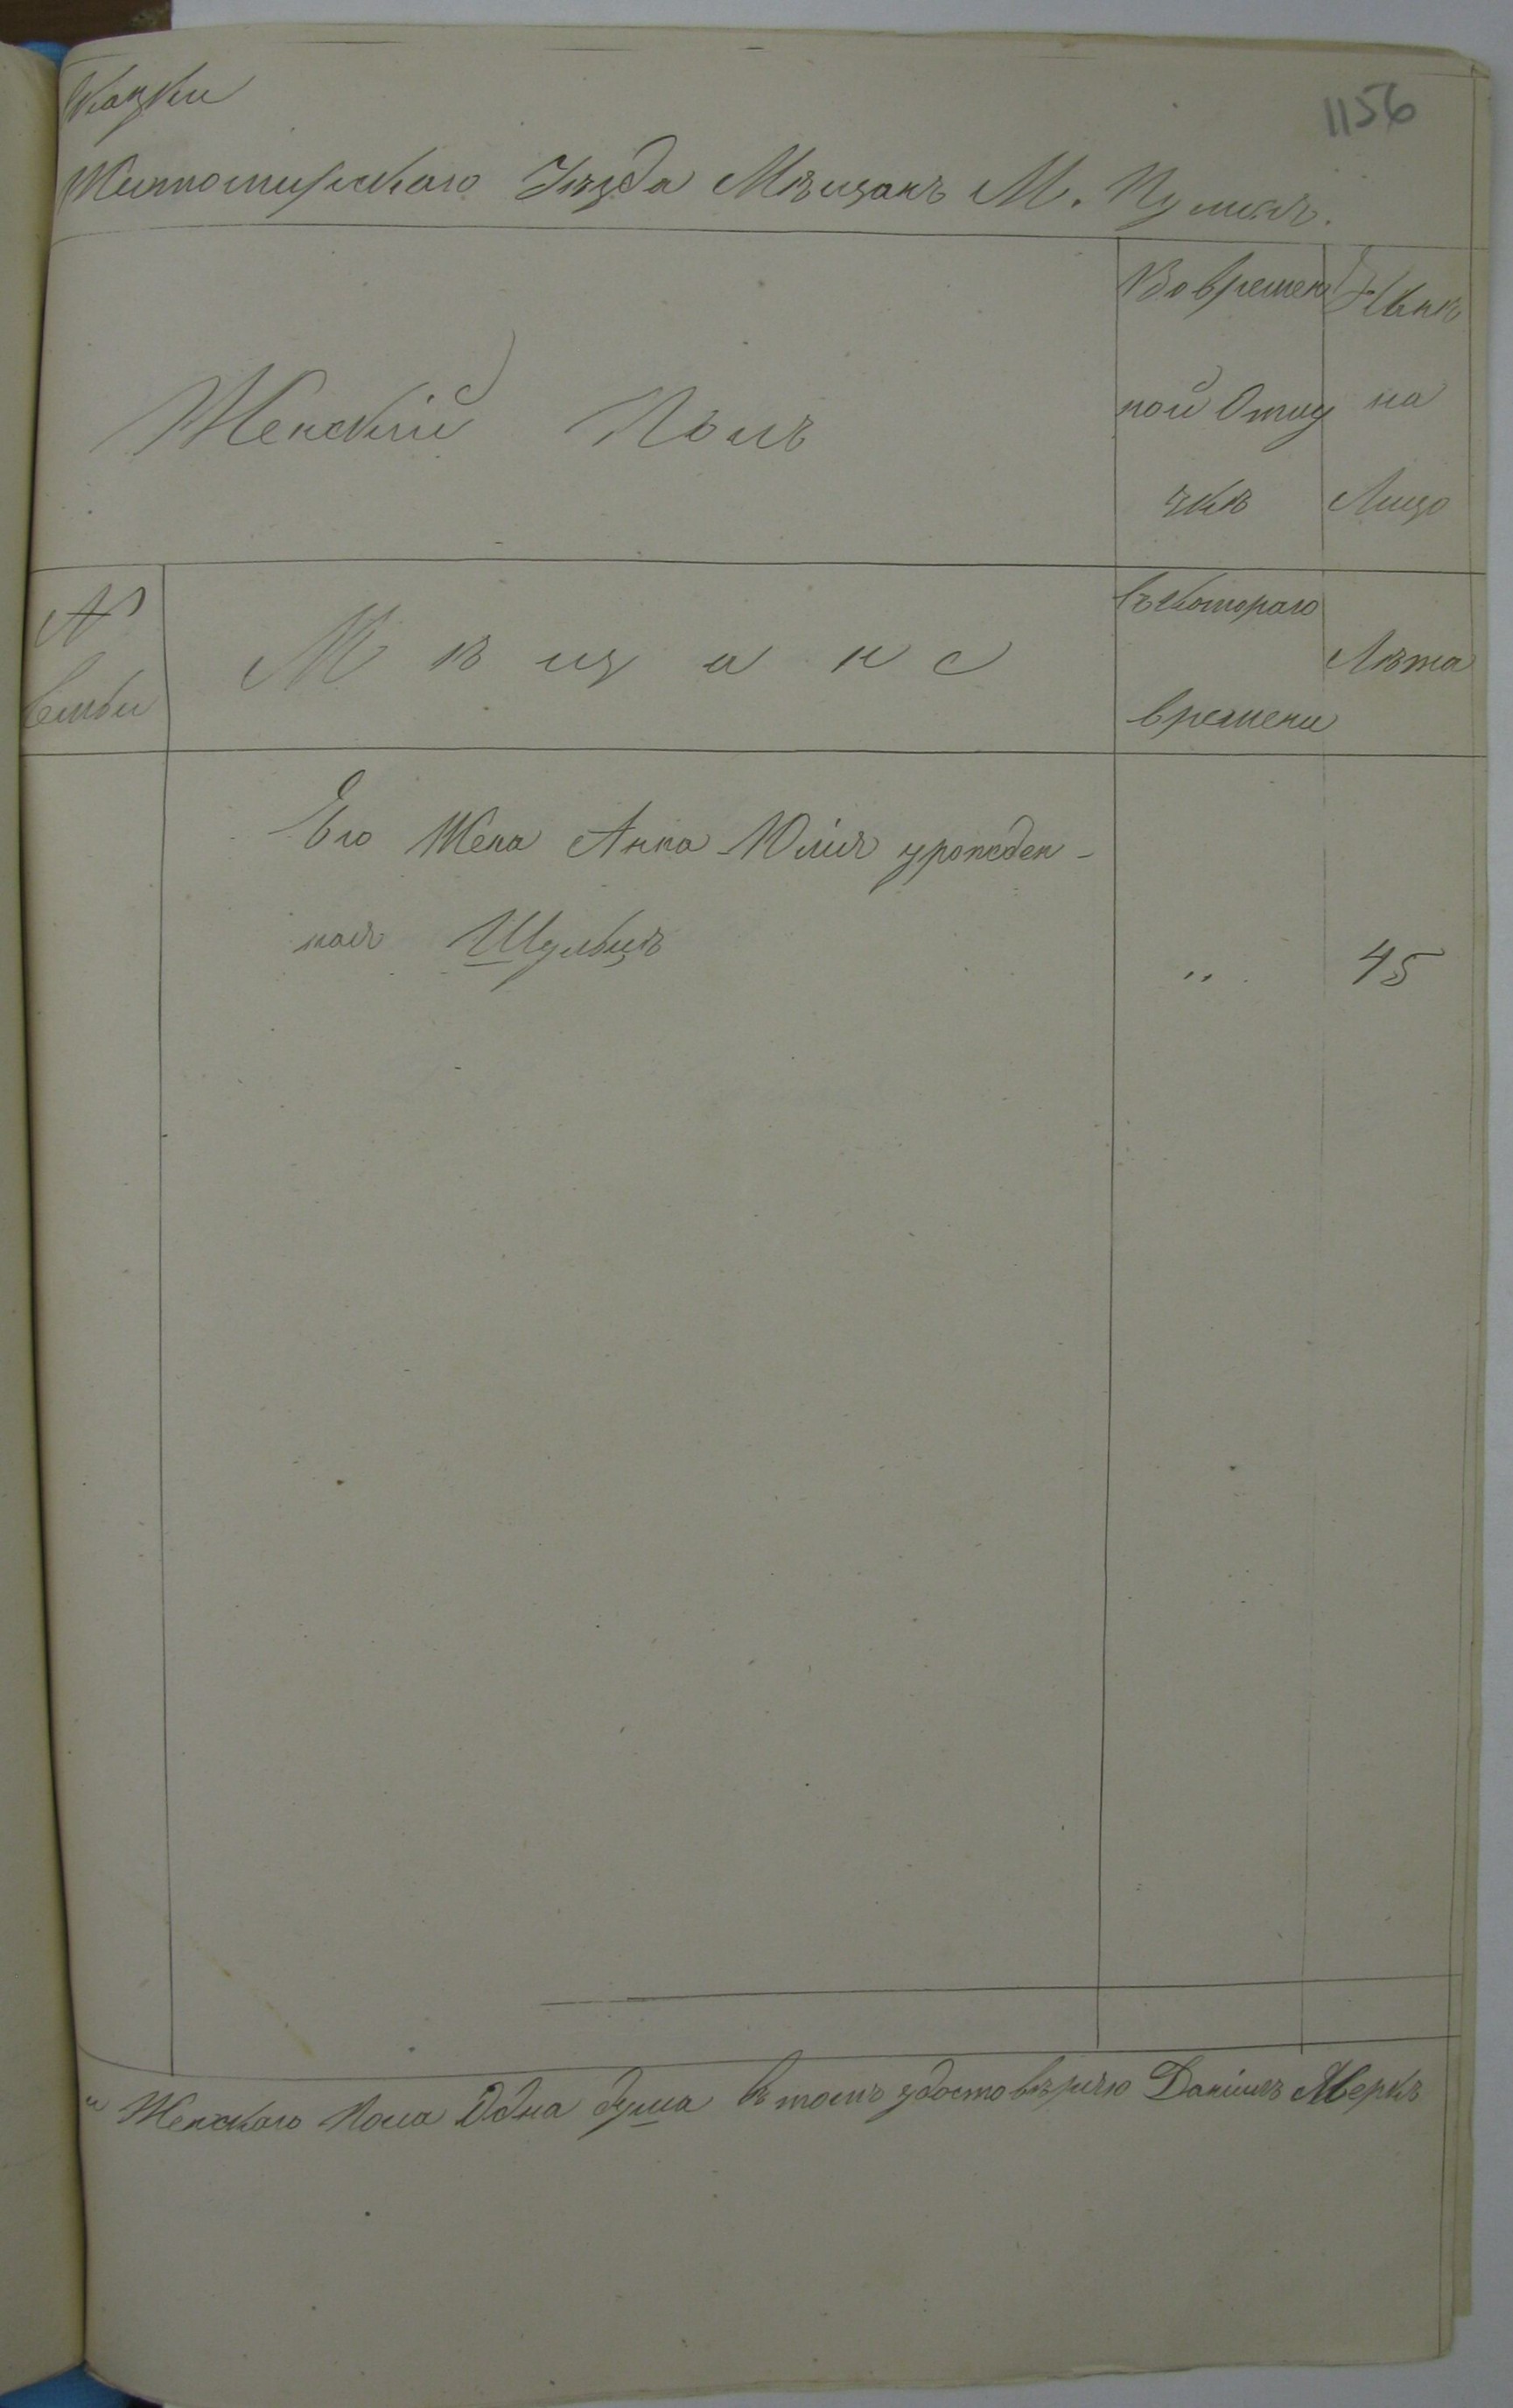 1156
Сказки
Житомирскаго Уѣзда Мѣщанъ М. Пулинъ.
Женскій Полъ
Во времен
ной Отлу
чкѣ
Нынѣ
на
Лицо
№
Семьи
Мѣщане
Съ котораго
времени
Лѣта
Его Жена Анна Юлія урожден-
ная Шульцъ
" 45
и Женскаго Пола Одна душа въ томъ удостовѣряю Даніилъ Меркъ